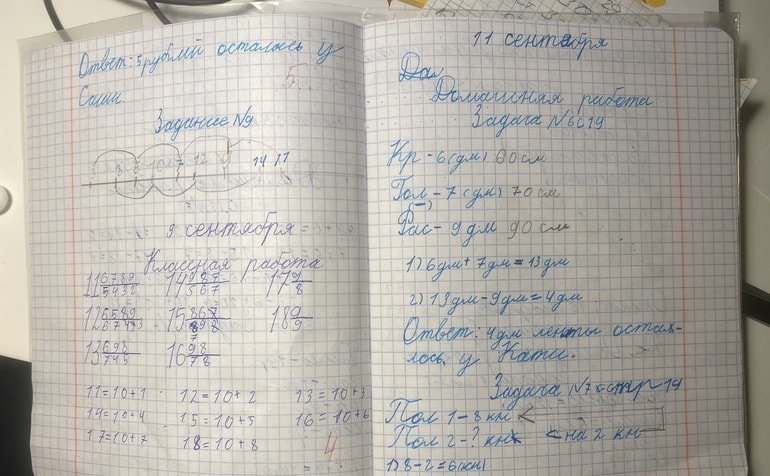 Ответ: 5 рублей осталось у
Саши.
5.
Задание №9
14 17
9 сентября
Классная работа
11 6789 / 5432
14 987 / 567
17 9 / 8
12 6589 / 67453
15 867 / 898
18 9 / 9
13 698 / 745
7
16 98 / 78
11=10+1 12=10+2 13=10+3
14=10+4 15=10+5 16=10+6
17=10+7 18=10+8
4
11 сентября
Дом
Домашняя работа
Задача №6с19
Кр - 6 (дм) 60 см
Гол - 7 (дм) 70 см
(-)
Рас - 9 дм 90 см
1) 6 дм + 7 дм = 13 дм
2) 13 дм - 9 дм = 4 дм
Ответ: 4 дм ленты остал-
лось у Кати.
Задача №7 стр 19
Пол 1 - 8 кн <
Пол 2 - ? кн < на 2 кн
1) 8 - 2 = 6 (кн)